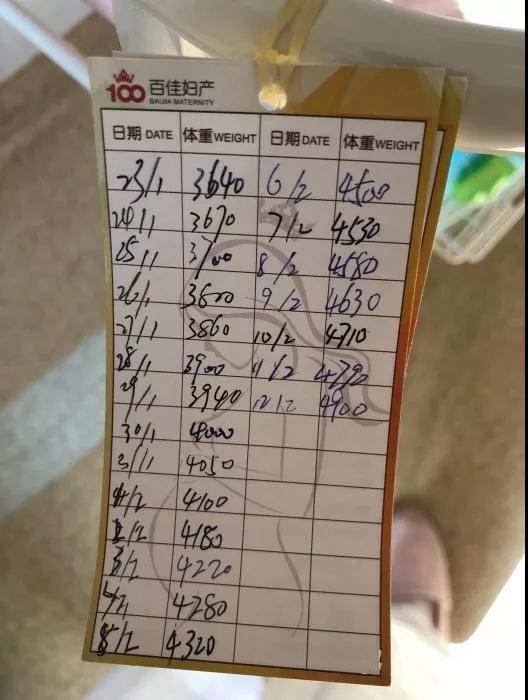 100 百佳妇产
BAIJIA MATERNITY
日期 DATE 体重 WEIGHT 日期 DATE 体重 WEIGHT
23/1 3640 6/2 4500
24/1 3670 7/2 4530
25/1 3700 8/2 4580
26/1 3800 9/2 4630
27/1 3860 10/2 4710
28/1 3900 11/2 4790
29/1 3940 12/2 4900
30/1 4000
31/1 4050
1/2 4100
2/2 4180
3/2 4220
4/2 4280
5/2 4320